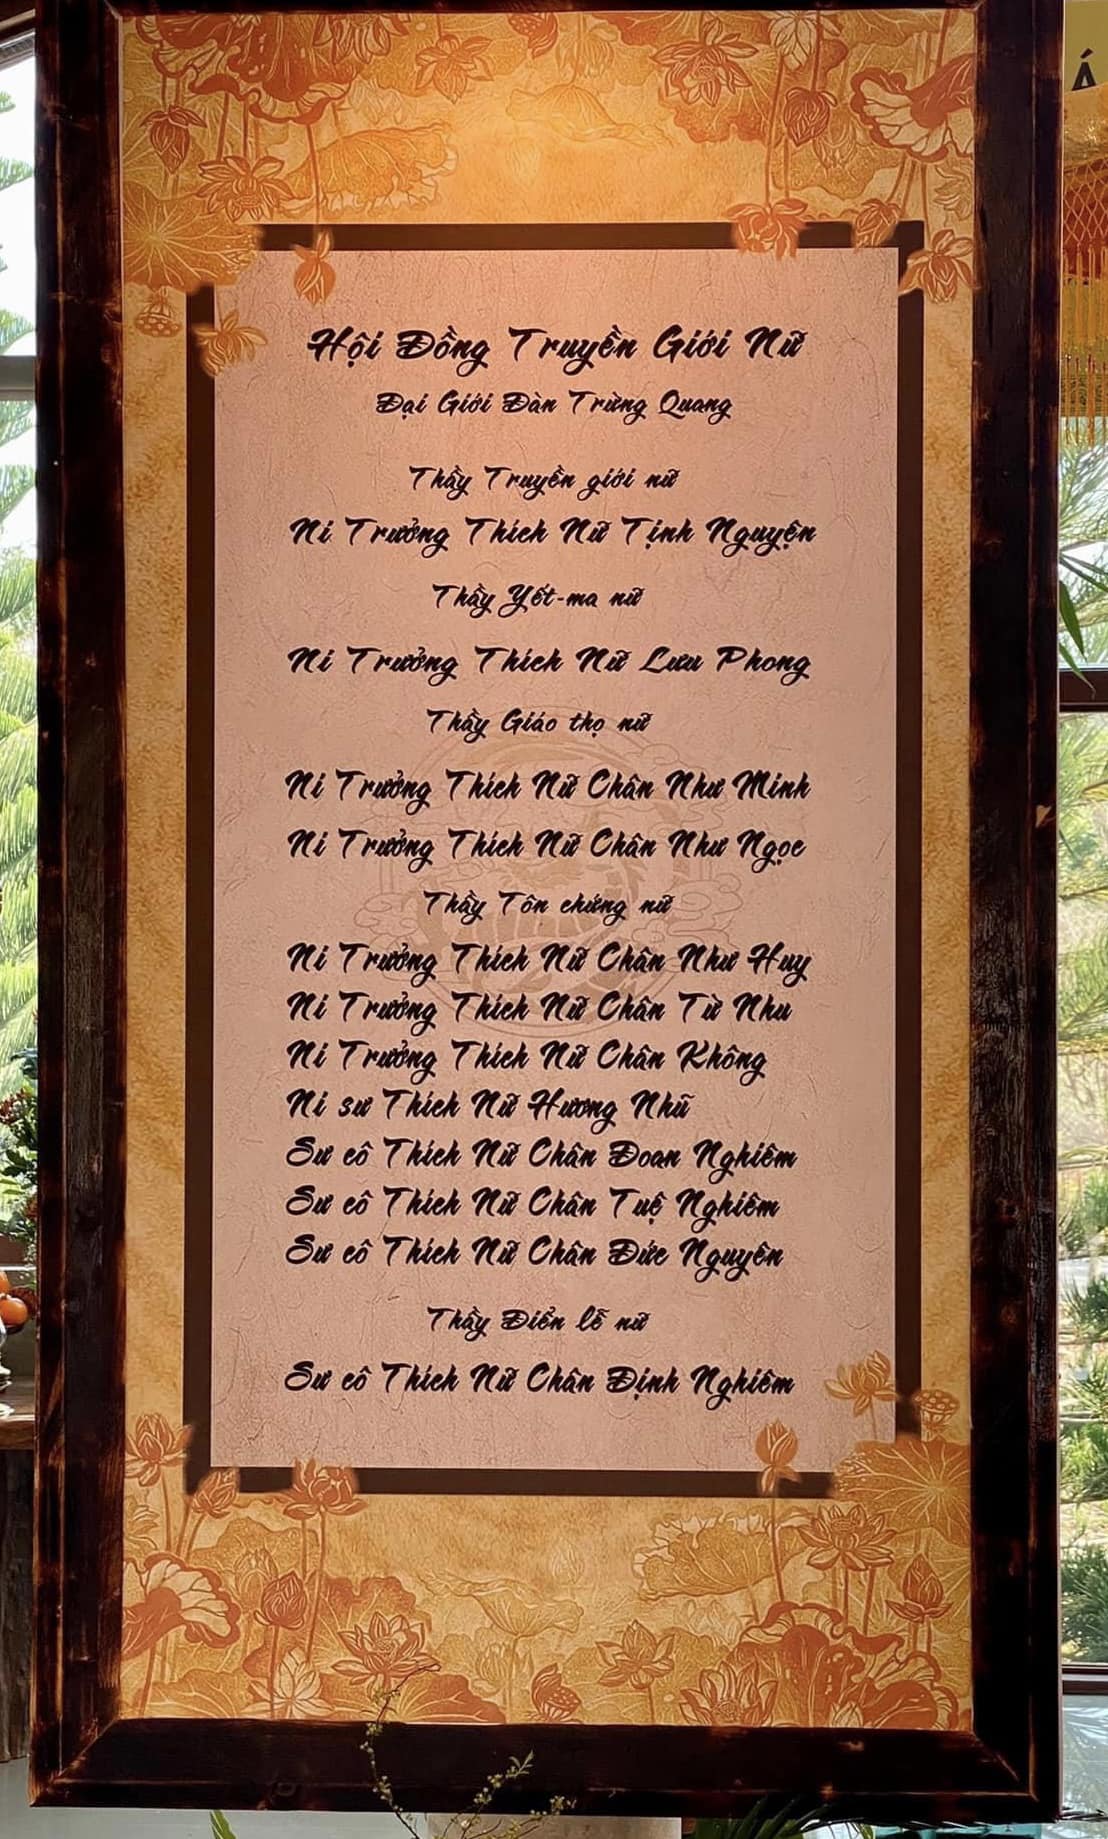 Hội Đồng Truyền Giới Nữ
Đại Giới Đàn Trừng Quang
Thầy Truyền giới nữ
Ni Trưởng Thích Nữ Tịnh Nguyện
Thầy Yết-ma nữ
Ni Trưởng Thích Nữ Lưu Phong
Thầy Giáo thọ nữ
Ni Trưởng Thích Nữ Chân Như Minh
Ni Trưởng Thích Nữ Chân Như Ngọc
Thầy Tôn chứng nữ
Ni Trưởng Thích Nữ Chân Như Huy
Ni Trưởng Thích Nữ Chân Từ Nhu
Ni Trưởng Thích Nữ Chân Không
Ni sư Thích Nữ Hương Nhũ
Sư cô Thích Nữ Chân Đoan Nghiêm
Sư cô Thích Nữ Chân Tuệ Nghiêm
Sư cô Thích Nữ Chân Đức Nguyên
Thầy Điển lễ nữ
Sư cô Thích Nữ Chân Định Nghiêm